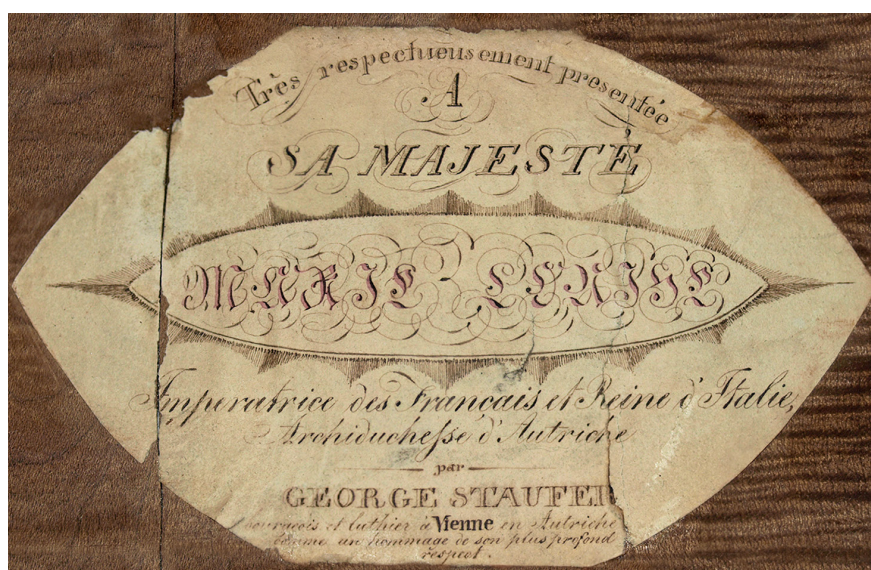 Très respectueusement presentée
A
SA MAJESTÉ
MARIE - LOUISE
Imperatrice des Francais et Reine d'Italie,
Archiduchesse d'Autriche
par
GEORGE STAUFER
bourgeois et luthier à Vienne en Autriche
comme un hommage de son plus profond
respect.